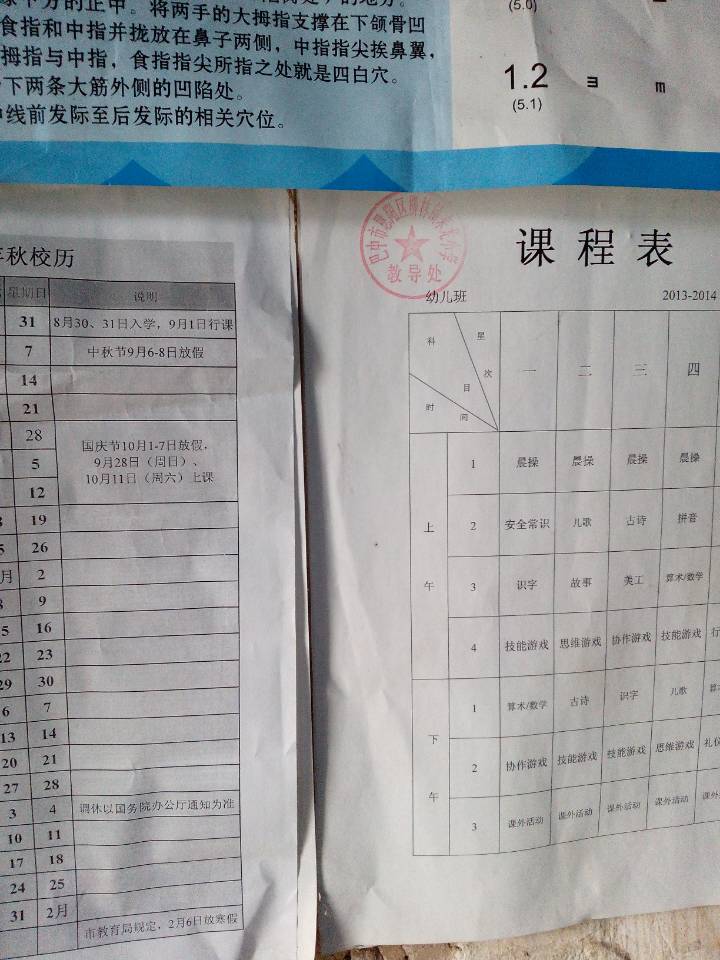 食指和中指并拢放在鼻子两侧，中指指尖挨鼻翼，
下方的正中。将两手的大拇指支撑在下颌骨凹
拇指与中指，食指指尖所指之处就是四白穴。
下两条大筋外侧的凹陷处。
线前发际至后发际的相关穴位。
(5.0)
1.2
(5.1)
秋校历
星期日 说明
31 8月30、31日入学，9月1日行课
7 中秋节9月6-8日放假
14
21
28 国庆节10月1-7日放假，
5 9月28日（周日）、
12 10月11日（周六）上课
19
26
月 2
9
16
22 23
29 30
6 7
13 14
20 21
27 28
3 4 调休以国务院办公厅通知为准
10 11
17 18
24 25
31 2月
市教育局规定，2月6日放寒假
教导处
课程表
幼儿班 2013-2014
科 目 星 次 时 间 一 二 三 四
上午
1 晨操 晨操 晨操 晨操
2 安全常识 儿歌 古诗 拼音
3 识字 故事 美工 算术/数学
4 技能游戏 思维游戏 协作游戏 技能游戏
下午
1 算术/数学 古诗 识字 儿歌
2 协作游戏 技能游戏 技能游戏 思维游戏 礼仪
3 课外活动 课外活动 课外活动 课外活动